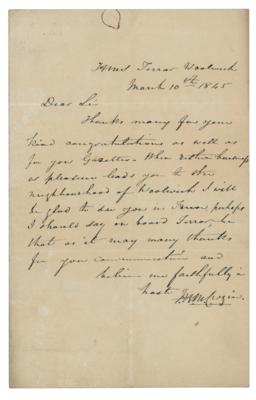 HMS Terror Woolwich
March 10th 1845
Dear Sir
Thanks many for your
kind congratulations as well as
for your Gazette. When either business
or pleasure leads you to the
neighbourhood of Woolwich I will
be glad to see you in Terror perhaps
I should say on board Terror, be
that as it may many thanks
for your communication and
believe me faithfully in
haste